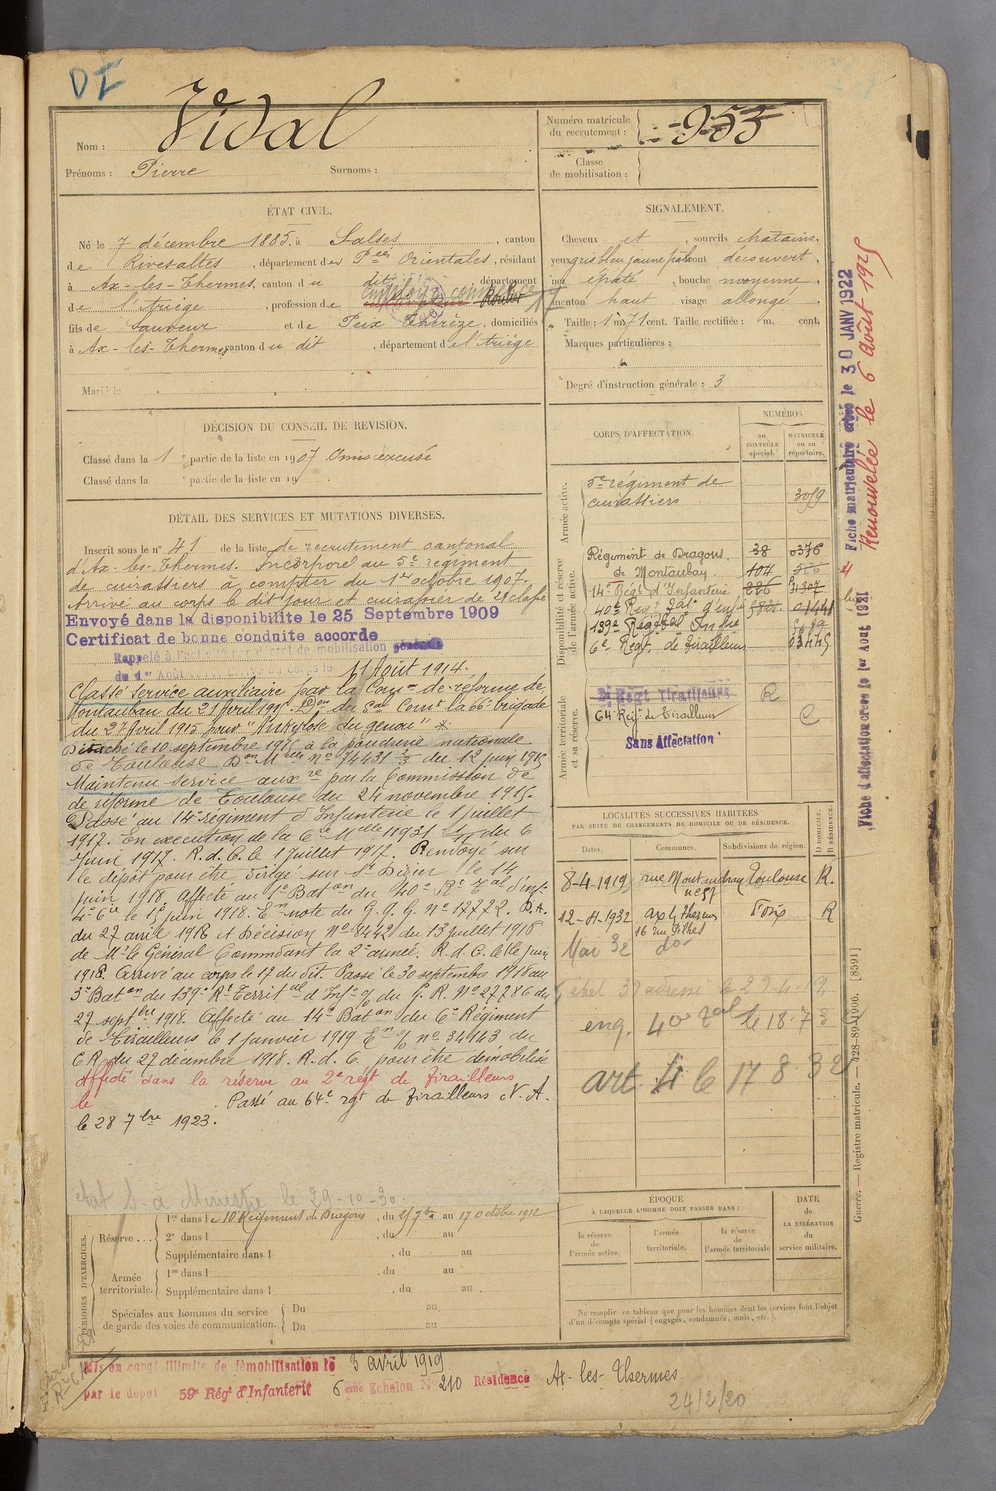 DI
Nom : Vidal
Prénoms : Pierre Surnoms :
Numéro matricule du recrutement : 953
Classe de mobilisation :
ÉTAT CIVIL.
Né le 7 décembre 1885, à Salses, canton
de Rivesaltes, département des P.ées Orientales, résidant
à Ax-les-Thermes, canton du dit, département
de l'Ariège, profession de
fils de Sauveur et de Peix Thérèze, domiciliés
à Ax-les-Thermes, canton du dit, département de l'Ariège
Marié le
SIGNALEMENT.
Cheveux et, sourcils chatains,
yeux gris bleu jaune pâle front découvert,
nez épaté, bouche moyenne,
menton haut, visage allongé
Taille : 1 m. 71 cent. Taille rectifiée : m. cent.
Marques particulières :
Degré d'instruction générale : 3
DÉCISION DU CONSEIL DE REVISION.
Classé dans la 1e partie de la liste en 1907 Omis excusé
Classé dans la partie de la liste en 19
DÉTAIL DES SERVICES ET MUTATIONS DIVERSES.
Inscrit sous le n° 41 de la liste de recrutement cantonal
d'Ax-les-Thermes. Incorporé au 5e régiment
de cuirassiers à compter du 1er octobre 1907.
Arrivé au corps le dit jour et cuirassier de 2e classe
Envoyé dans la disponibilite le 25 Septembre 1909
Certificat de bonne conduite accorde
Rappelé à l'activité de mobilisation générale
du 1er Août
11 Août 1914.
Classé service auxiliaire par la Comon de réforme de
Montauban du 21 Avril 1915. du Comt la 66e brigade
du 27 Avril 1915 pour "Ankylose du genou" *
Détaché le 10 septembre 1915 à la poudrerie nationale
de Toulouse Don Mlle n° 74431 2/3 du 12 juin 1915
Maintenu service auxre par la Commission de
de réforme de Toulouse du 24 novembre 1915.
Passé au 14e régiment d'Infanterie le 1 juillet
1917. En exécution de la Ce Mlle 11931 du 6
Juin 1917. R.d.C. le 1 Juillet 1917. Renvoyé sur
le dépôt pour être dirigé sur St Dizier le 14
juin 1918. Affecté au 1er Baton du 40e Rt Tal d'inf.
4e Cie le 15 juin 1918. En note du G.Q.G. N° 17772. D.A.
du 27 avril 1918 et Décision N° 8442 du 13 juillet 1918
de Mr le Général Commdant la 2e armée. R.d.C. le juin
1918. Arrivé au corps le 17 du dit Passé le 30 septembre 1918 au
3e Baton du 139e Rt Territal d'Infie % du G.R. N° 27786 du
27 septbre 1918. Affecté au 14e Baton du 6e Régiment
de Tirailleurs le 1 janvier 1919 En % n° 34143 du
C.R. du 27 décembre 1918. R.d.C. pour être démobilisé
Affecté dans la réserve au 2e régt de Tirailleurs
le Passé au 64e rgt de Tirailleurs N.A.
le 28 7bre 1923.
état S. a Ministre le 29-10-30.
CORPS D'AFFECTATION.
NUMÉROS
au CONTRÔLE spécial.
MATRICULE ou au répertoire.
Armée active.
5e régiment de
cuirassiers 3059
Disponibilité et réserve de l'armée active.
Régiment de Dragons 38 0376
de Montauban. 104
14e Régt d'Infanterie 226
40e Rgt Tal d'inf 01441
139e Régt Tal Infie
6e Régt. de Tirailleurs 03445
Armée territoriale et sa réserve.
2e Régt Tirailleurs R
64e Regt de Tirailleurs
Sans Affectation
LOCALITÉS SUCCESSIVES HABITÉES
PAR SUITE DE CHANGEMENTS DE DOMICILE OU DE RÉSIDENCE.
Dates. Communes. Subdivisions de région. D DOMICILE. R RÉSIDENCE.
8-4-1919 rue Montaudran n° 57 Toulouse R.
12-4-1932 Ax les Thermes Foix R
Mai 32 do
adresse le 29-4-
eng. 40 le 18.7
art 4 le 17 8 32
ÉPOQUE
À LAQUELLE L'HOMME DOIT PASSER DANS :
la réserve de l'armée active.
l'armée territoriale.
la réserve de l'armée territoriale
DATE de LA LIBÉRATION du service militaire.
Ne remplir ce tableau que pour les hommes dont les services font l'objet
d'un décompte spécial (engagés, condamnés, omis, etc.).
PÉRIODES D'EXERCICES.
Réserve . . . 1re dans le 10e Régiment de Dragons, du 25 7bre au 17 octobre 1912
2e dans l , du au
Supplémentaire dans l , du au
Armée territoriale. 1re dans l , du au
Supplémentaire dans l , du au
Spéciales aux hommes du service
de garde des voies de communication. Du au
Du au
Mis en congé illimité de démobilisation le 3 avril 1919
par le dépôt 59e Régt d'Infanterie 6eme Echelon N° 210 Résidence Ax-les-Thermes
24/2/20
Fiche matriculaire créée le 30 JANV 1922
Renouvelée le 6 août 1925
Fiche d'affectation créée le 1er Août 1931
Guerre. — Registre matricule. — 328-89-1906. [8591]